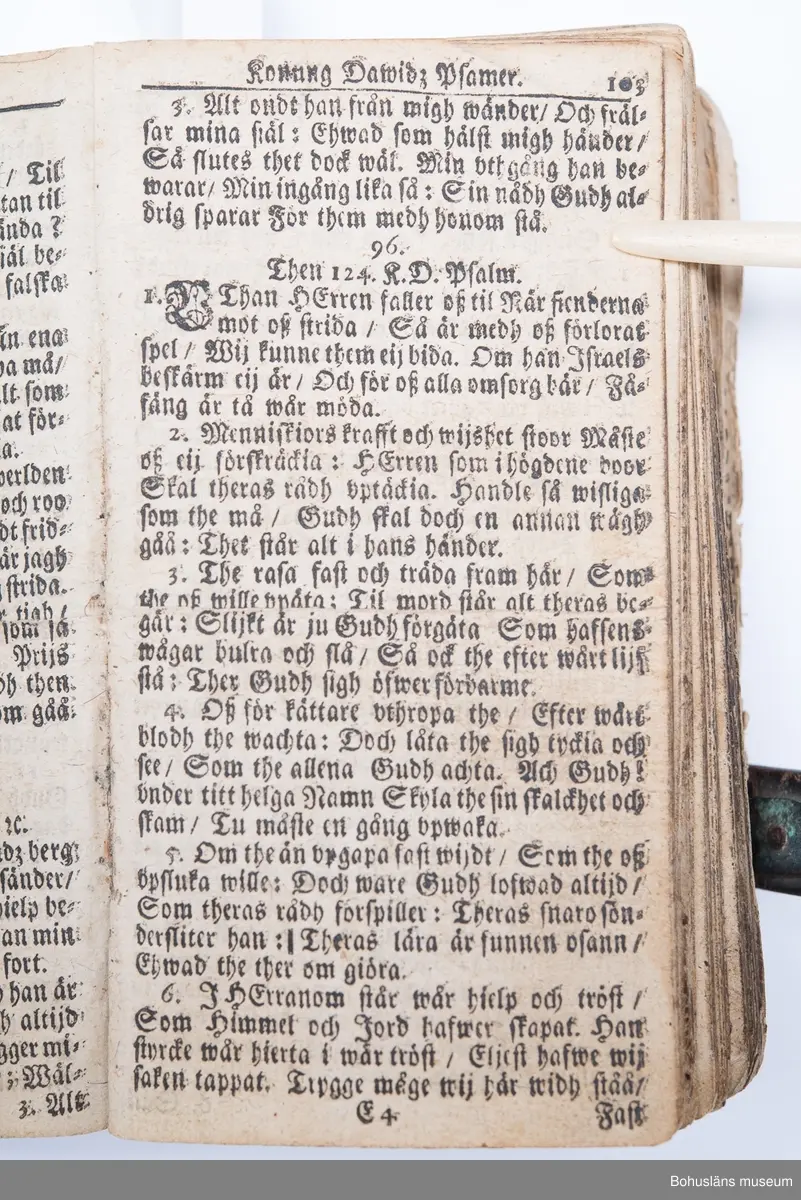 / Til
tan til
ända?
själ be-
falska
in ena
pa må/
lt som
at för-
a.
verlden
och roo
dt frid-
är jagh
strida.
r tigh/
som så
Prijs
dh then
om gåå
ꝛc.
dz berg
sänder/
hielp be-
an min
fort.
han är
h altijd
gger mi-
: Wäl-
3. Alt
Konung Dawidz Psamer. 103
3. Alt ondt han från migh wänder/ Och fräl-
sar mina siäl: Ehwad som hälst migh händer/
Så slutes thet dock wäl. Min vthgång han be-
warar/ Min ingång lika så: Sin nådh Gudh al-
drig sparar För them medh honom stå.
96.
Then 124. K. D. Psalm.
1. WThan HErren faller oß til När fienderna
mot oß strida / Så är medh oß förlorat
spel / Wij kunne them eij bida. Om han Israels
beskärm eij är / Och för oß alla omsorg bär / Få-
fäng är tå wår möda.
2. Menniskiors krafft och wijshet stoor Måste
oß eij förskräckia: HErren som i högdene boor
Skal theras rådh vptäckia. Handle så wisliga
som the må / Gudh skal doch en annan wägh
gåå: Thet står alt i hans händer.
3. The rasa fast och träda fram här / Som
the oß wille vpäta: Til mord står alt theras be-
gär: Slijkt är ju Gudh förgäta Som haffens
wågar bulra och slå / Så ock the efter wårt lijf
stå: Ther Gudh sigh öfwer förbarme.
4. Oß för kättare vthropa the / Efter wårt
blodh the wachta: Doch låta the sigh tyckia och
see / Som the allena Gudh achta. Ach Gudh!
vnder titt helga Namn Skyla the sin skalckhet och
skam / Tu måste en gång vpwaka.
5. Om the än vpgapa fast wijdt / Som the oß
vpsluka wille: Doch ware Gudh lofwad altijd /
Som theras rådh förspiller: Theras snaro sön-
dersliter han: | Theras lära är funnen osann /
Ehwad the ther om giöra.
6. I HErranom står wår hielp och tröst /
Som Himmel och Jord hafwer skapat. Han
styrcke wår hierta i wår tröst / Eljest hafwe wij
saken tappat. Trygge måge wij här widh ståå/
E 4 Fast
Bohusläns museum